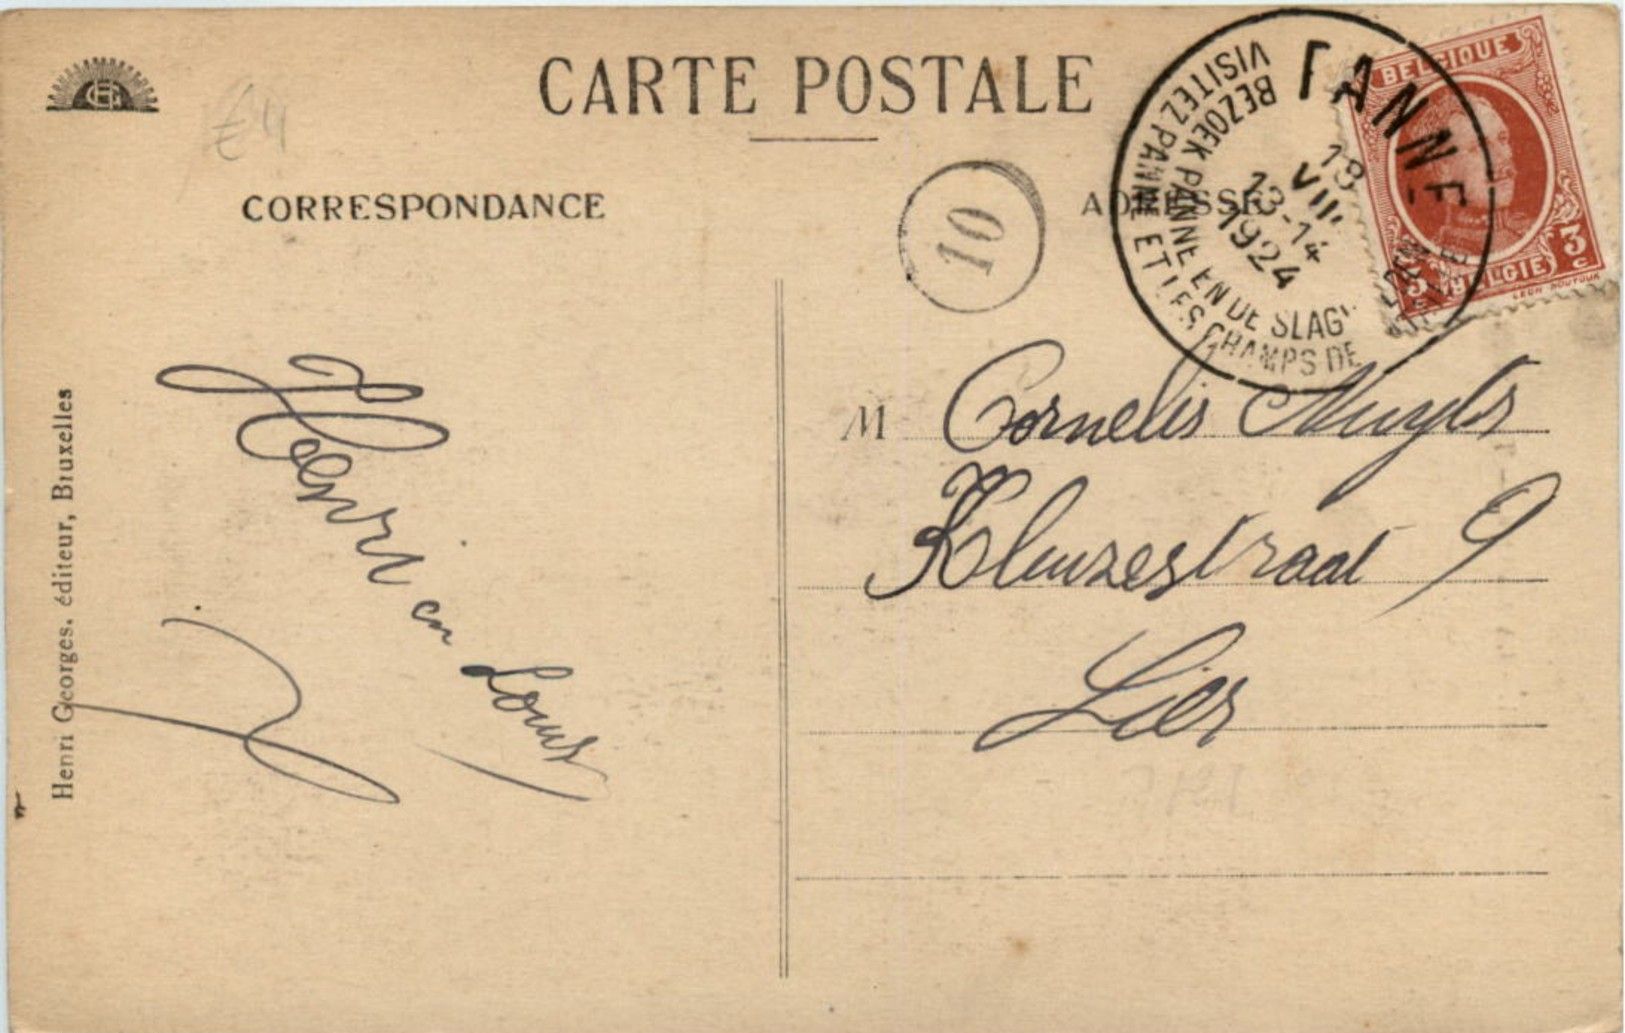 CARTE POSTALE
£4
CORRESPONDANCE
Henri Georges, éditeur, Bruxelles
Henri en
Louis
10
ADRESSE
PANNE
18
VIII
13-14
1924
BEZOEK PANNE EN DE SLAG
VISITEZ PANNE ET LES CHAMPS DE
BELGIQUE
3 BELGIË 3
C
M Cornelis Muyls
Kluizestraat 9
Lier